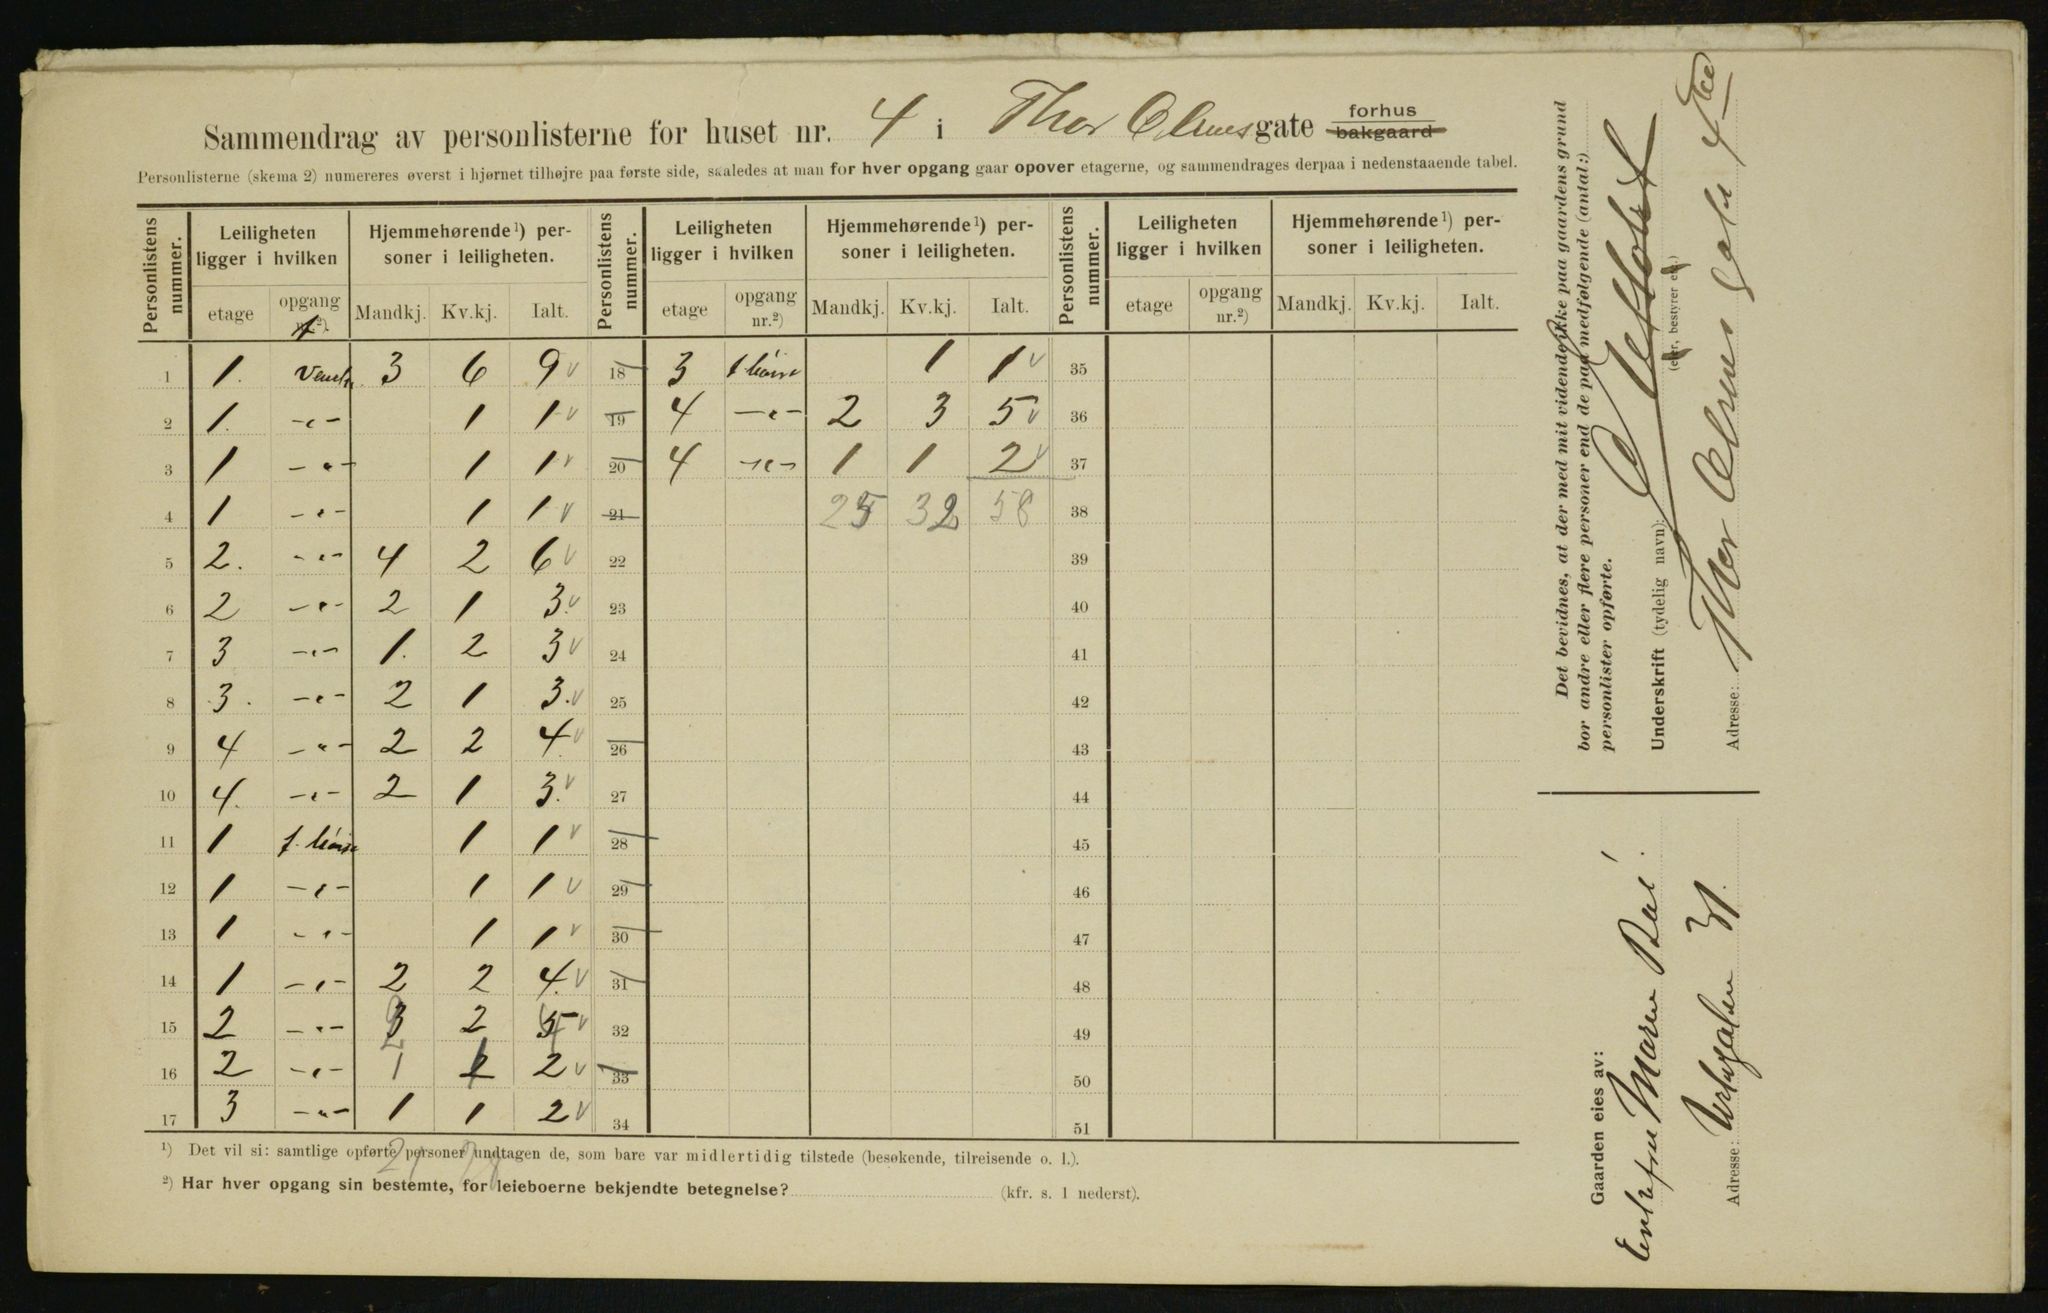 Sammendrag av personlisterne for huset nr. 4 i Thor Olsens gate forhus bakgaard
Personlisterne (skema 2) numereres øverst i hjørnet tilhøjre paa første side, saaledes at man for hver opgang gaar opover etagerne, og sammendrages derpaa i nedenstaaende tabel.
Personlistens nummer. Leiligheten ligger i hvilken Hjemmehørende¹) personer i leiligheten. Personlistens nummer. Leiligheten ligger i hvilken Hjemmehørende¹) personer i leiligheten. Personlistens nummer. Leiligheten ligger i hvilken Hjemmehørende¹) personer i leiligheten.
etage opgang nr.²) Mandkj. Kv.kj. Ialt. etage opgang nr.²) Mandkj. Kv.kj. Ialt. etage opgang nr.²) Mandkj. Kv.kj. Ialt.
1 1. 3 6 9 v 18 3 t høire 1 1 v 35
2 1. -"- 1 1 v 19 4 -"- 2 3 5 v 36
3 1 -"- 1 1 v 20 4 -"- 1 1 2 v 37
4 1 -"- 1 1 v 21 25 32 58 38
5 2. -"- 4 2 6 v 22 39
6 2 -"- 2 1 3. v 23 40
7 3 -"- 1. 2 3 v 24 41
8 3. -"- 2 1 3. v 25 42
9 4 -"- 2 2 4. v 26 43
10 4. -"- 2 1 3. v 27 44
11 1 t. høire 1 1 v 28 45
12 1 -"- 1 1 v 29 46
13 1 -"- 1 1 v 30 47
14 1 -"- 2 2 4. v 31 48
15 2 -"- 3 2 2 5 4 v 32 49
16 2 -"- 1 2 1 2 v 33 50
17 3 -"- 1 1 2 v 34 51
¹) Det vil si: samtlige opførte personer undtagen de, som bare var midlertidig tilstede (besøkende, tilreisende o. l.).
²) Har hver opgang sin bestemte, for leieboerne bekjendte betegnelse? (kfr. s. 1 nederst).
Det bevidnes, at der med mit vidende ikke paa gaardens grund
bor andre eller flere personer end de paa medfølgende (antal:)
personlister opførte.
Underskrift (tydelig navn):
(eier, bestyrer etc.)
Adresse: Thor Olsens Gate 4
Gaarden eies av:
Enkefru Maren
Adresse: 31.